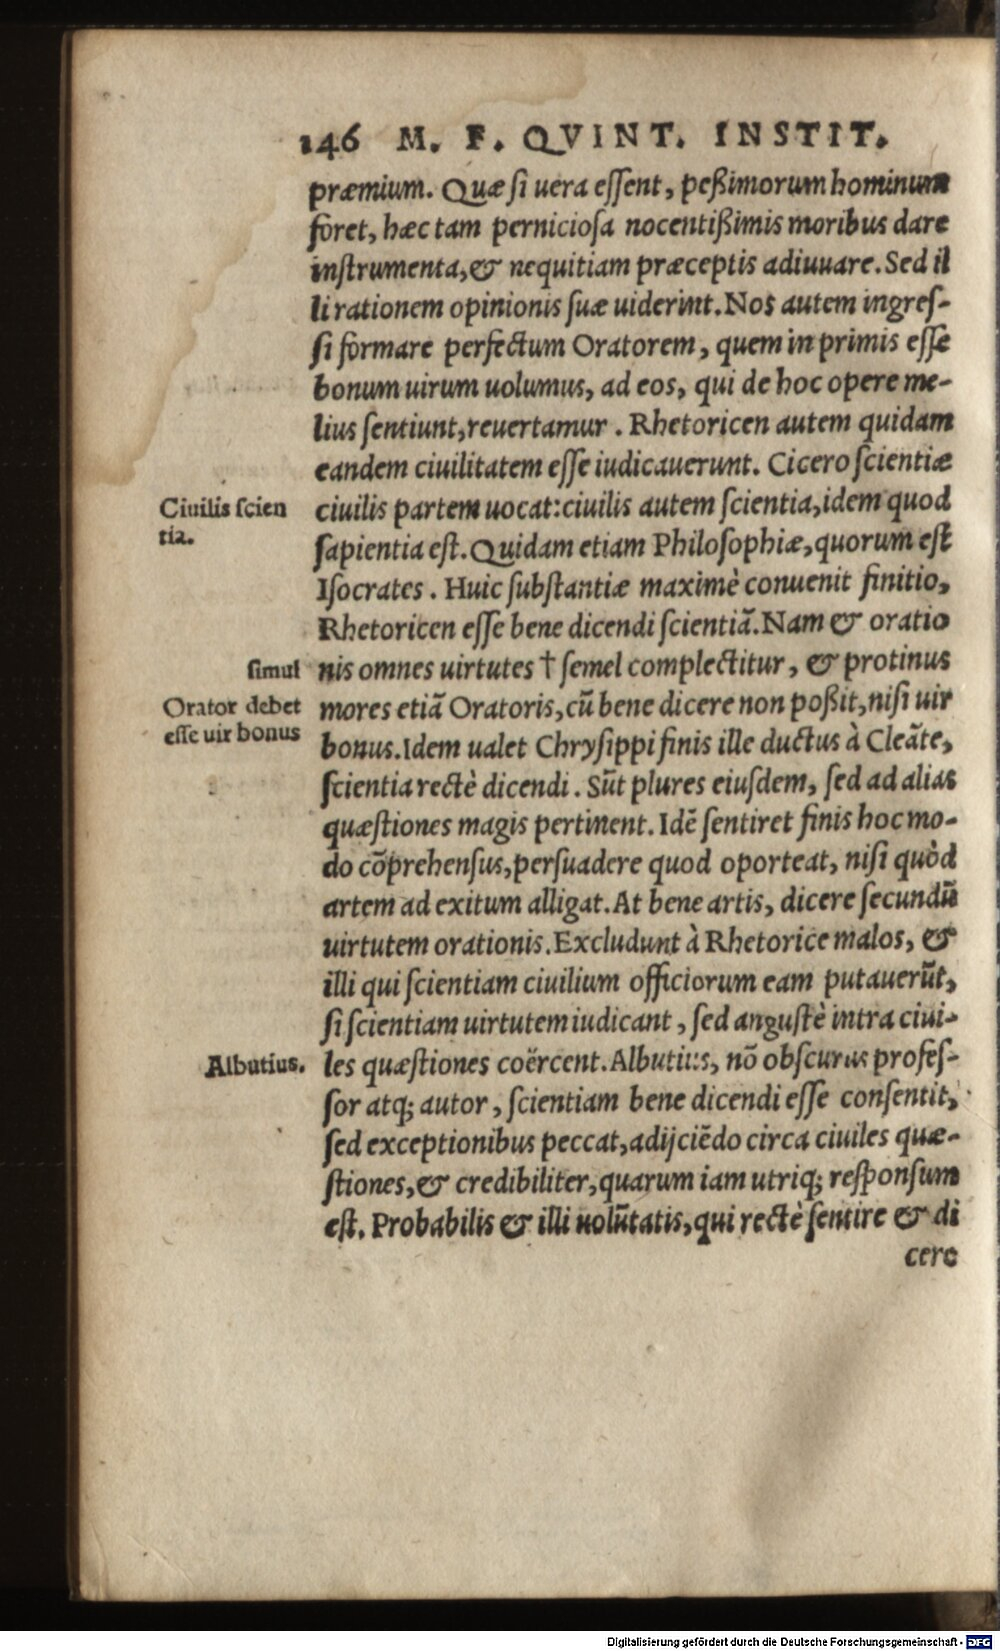 146 M. F. QVINT. INSTIT.
præmium. Quæ ſi uera eſſent, peßimorum hominum
foret, hæc tam pernicioſa nocentißimis moribus dare
inſtrumenta,& nequitiam præceptis adiuuare. Sed il
li rationem opinionis ſuæ uiderint. Nos autem ingreſ-
ſi formare perfectum Oratorem, quem in primis eſſe
bonum uirum uolumus, ad eos, qui de hoc opere me-
lius ſentiunt,reuertamur. Rhetoricen autem quidam
eandem ciuilitatem eſſe iudicauerunt. Cicero ſcientiæ
Ciuilis ſcien
tia.
ciuilis partem uocat:ciuilis autem ſcientia,idem quod
ſapientia eſt. Quidam etiam Philoſophiæ,quorum eſt
Iſocrates. Huic ſubſtantiæ maximè conuenit finitio,
Rhetoricen eſſe bene dicendi ſcientiã. Nam & oratio
simul
nis omnes uirtutes † ſemel complectitur, & protinus
Orator debet
eſſe uir bonus
mores etiã Oratoris,cũ bene dicere non poßit,niſi uir
bonus. Idem ualet Chryſippi finis ille ductus à Cleãte,
ſcientia rectè dicendi. Sũt plures eiuſdem, ſed ad alias
quæſtiones magis pertinent. Idẽ ſentiret finis hoc mo-
do cõprehenſus,perſuadere quod oporteat, niſi quòd
artem ad exitum alligat. At bene artis, dicere ſecundũ
uirtutem orationis. Excludunt à Rhetorice malos, &
illi qui ſcientiam ciuilium officiorum eam putauerũt,
ſi ſcientiam uirtutem iudicant, ſed anguſtè intra ciui-
Albutius.
les quæſtiones coërcent. Albutius, nõ obſcurus profeſ-
ſor atq; autor, ſcientiam bene dicendi eſſe conſentit,
ſed exceptionibus peccat,adijciẽdo circa ciuiles quæ-
ſtiones,& credibiliter,quarum iam utriq; reſponſum
eſt. Probabilis & illi uolũtatis,qui rectè ſentire & di
cere
Digitalisierung gefördert durch die Deutsche Forschungsgemeinschaft - DFG